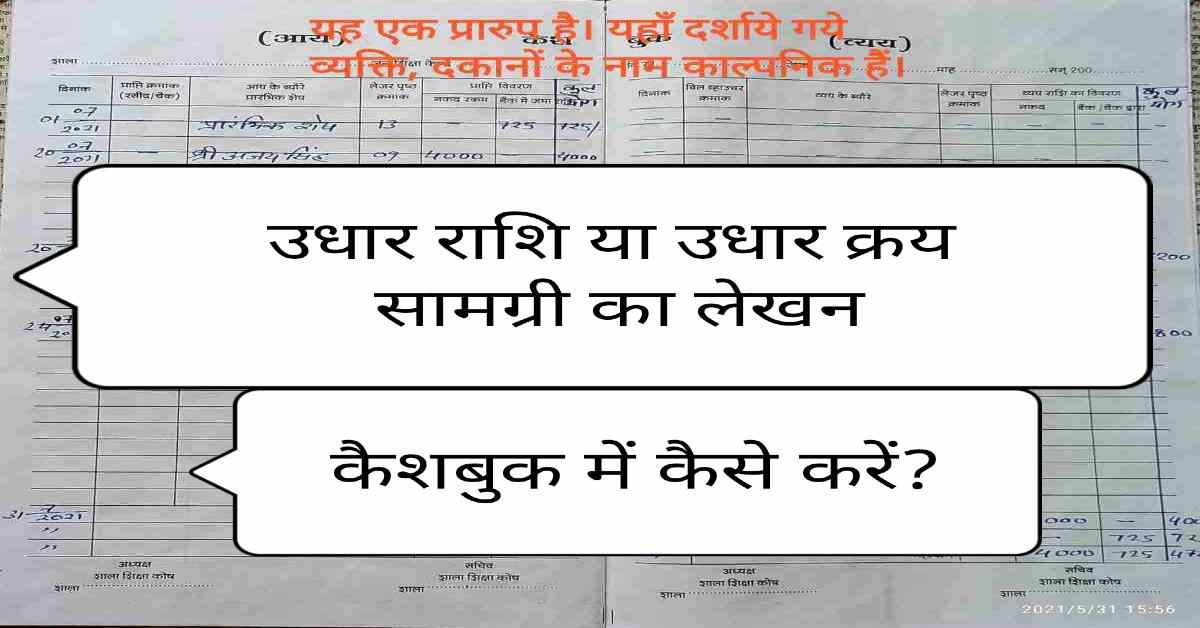 यह एक प्रारुप है। यहाँ दर्शाये गये
व्यक्ति, दकानों के नाम काल्पनिक हैं।
(आय) कैश बुक (व्यय)
शाला माह सन् 200
दिनांक प्राप्ति क्रमांक आय के ब्यौरे लेजर पृष्ठ प्राप्ति विवरण कुल दिनांक बिल व्हाउचर व्यय के ब्यौरे लेजर पृष्ठ व्यय राशि का विवरण कुल
(रसीद/चैक) प्रारंभिक शेष क्रमांक नकद रकम बैंक में जमा योग क्रमांक क्रमांक नकद बैंक/चैक द्वारा योग
01 07/2021 प्रारंभिक शेष 13 — 725 725/
20 07/2021 — श्री अजय सिंह 09 4000 — 4000
उधार राशि या उधार क्रय
सामग्री का लेखन
कैशबुक में कैसे करें?
200
800
31 7/2021 000 — 400
" — 725 72
" 4000 725 47
अध्यक्ष सचिव अध्यक्ष सचिव
शाला शिक्षा कोष शाला शिक्षा कोष शाला शिक्षा कोष शाला शिक्षा कोष
शाला शाला शाला शाला
2021/5/31 15:56